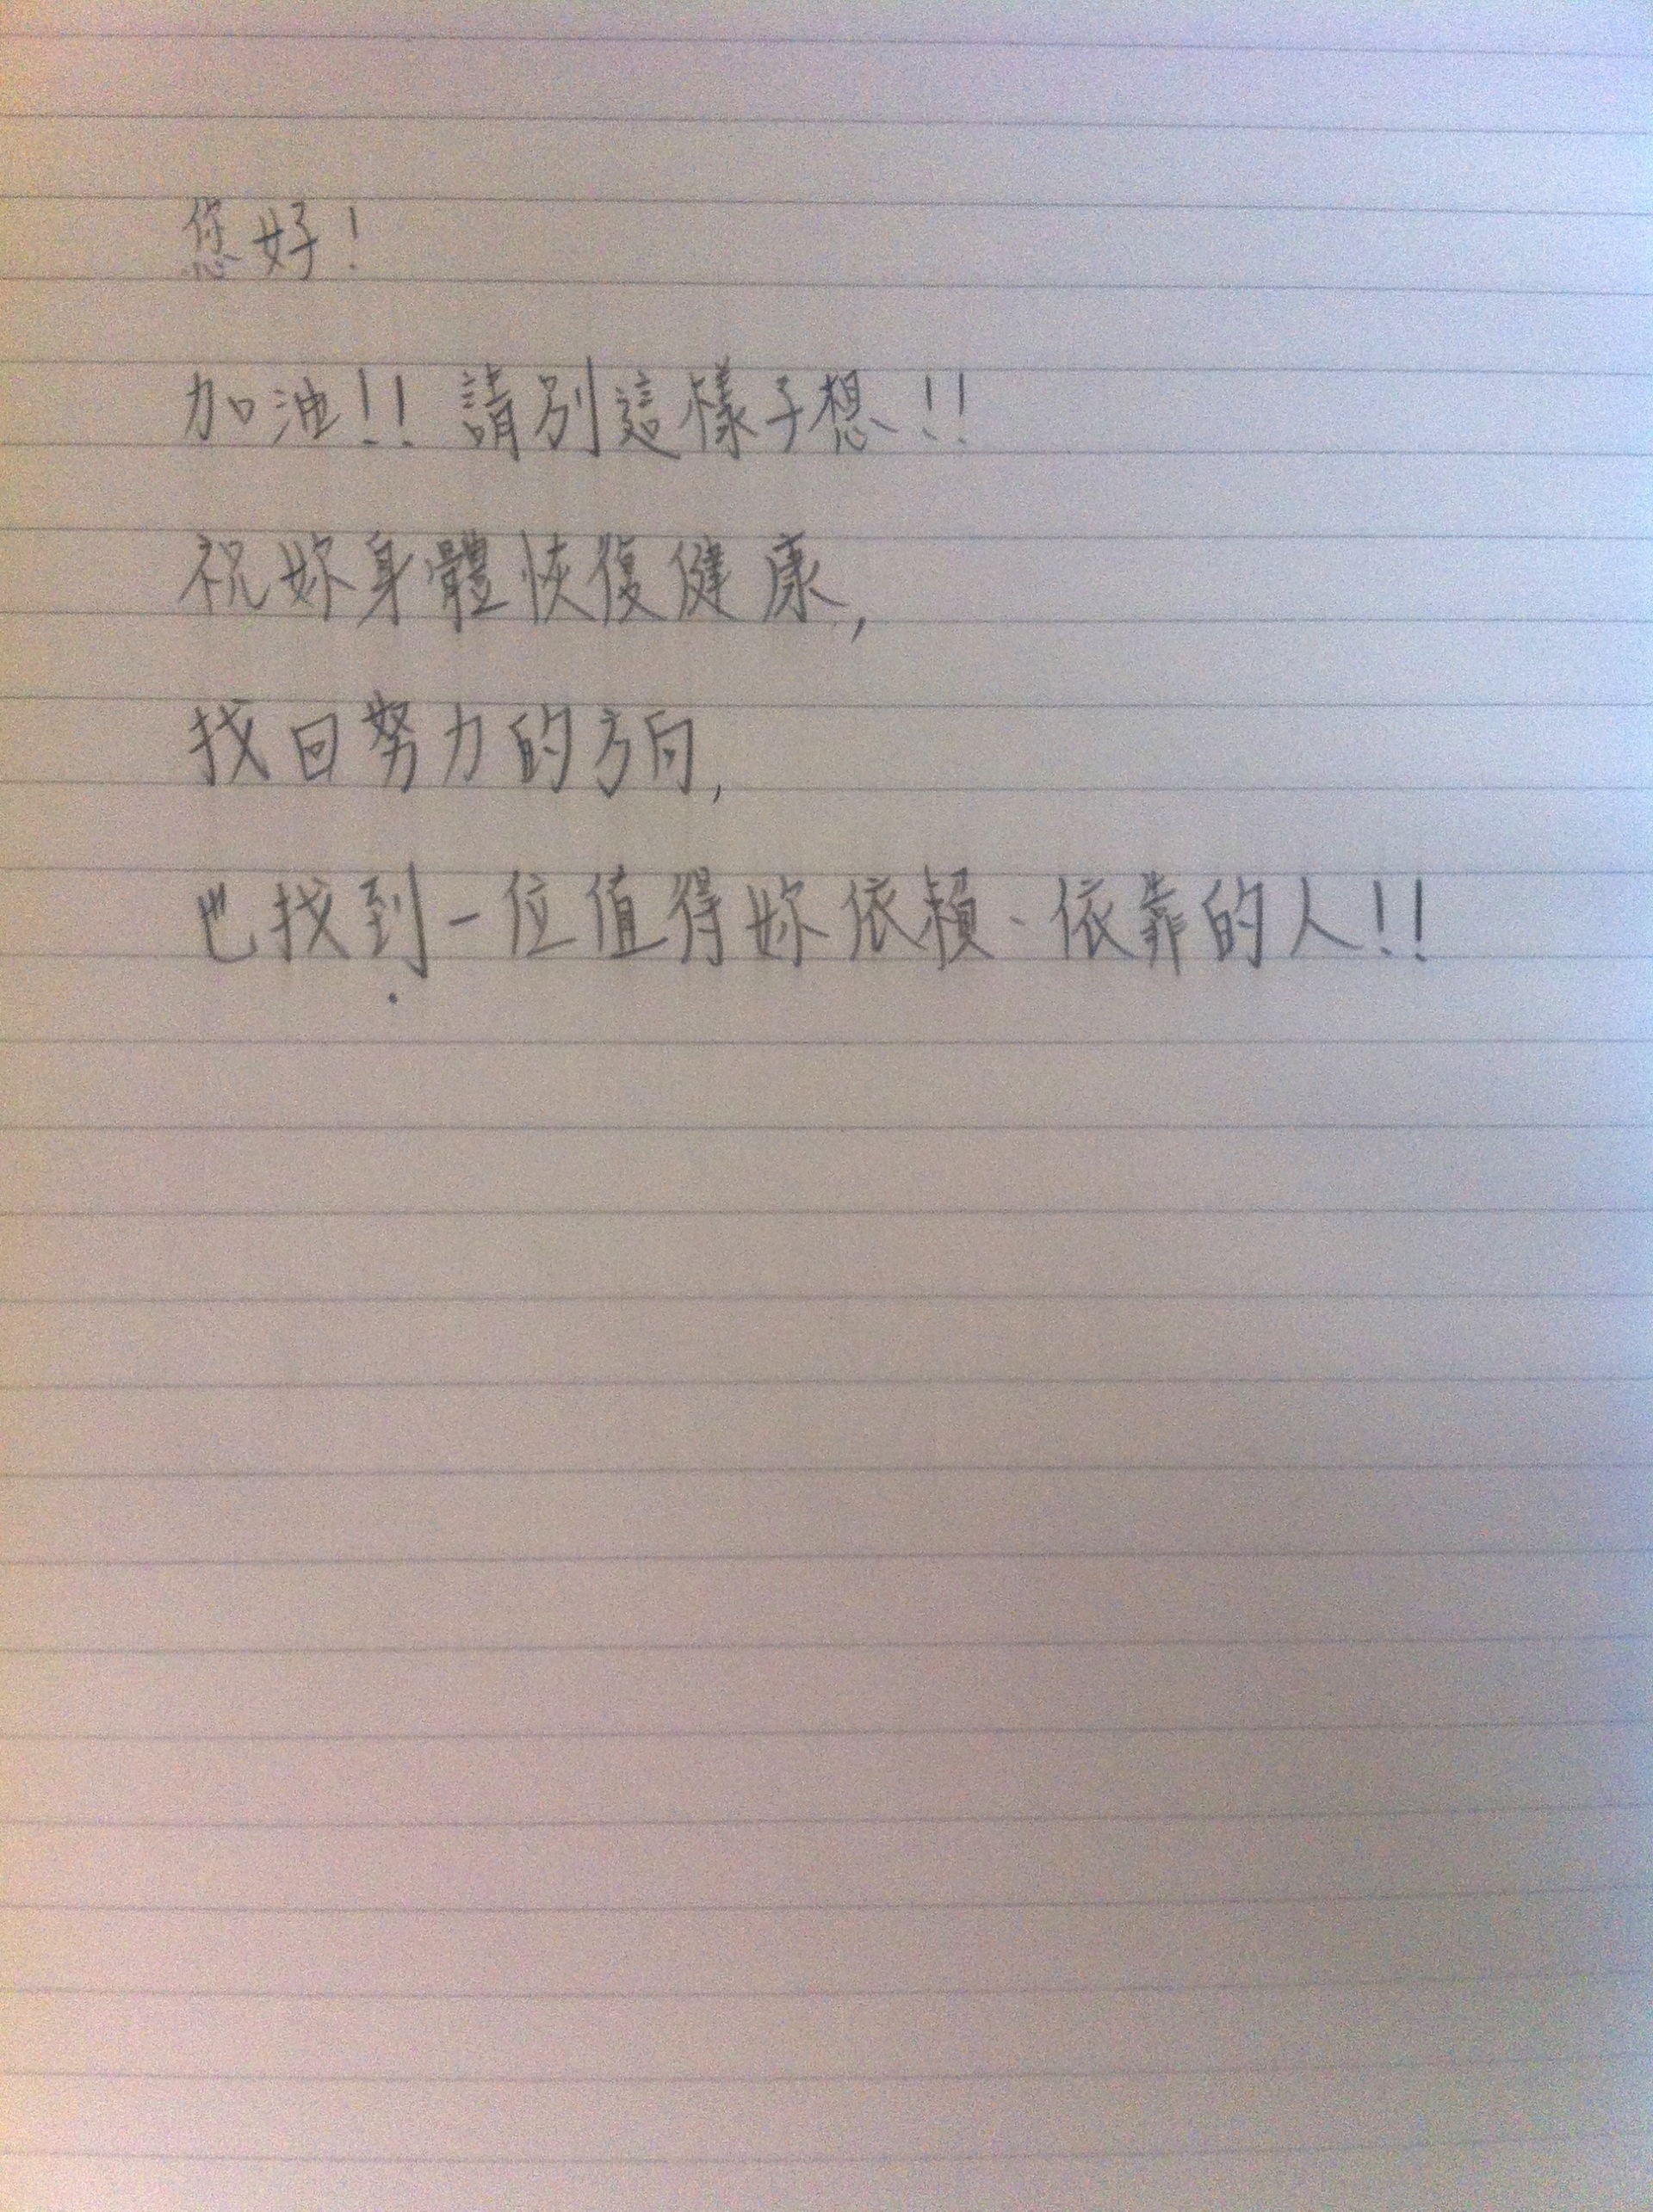 您好!
加油!! 請別這樣子想!!
祝妳身體恢復健康,
找回努力的方向,
也找到一位值得妳依賴、依靠的人!!